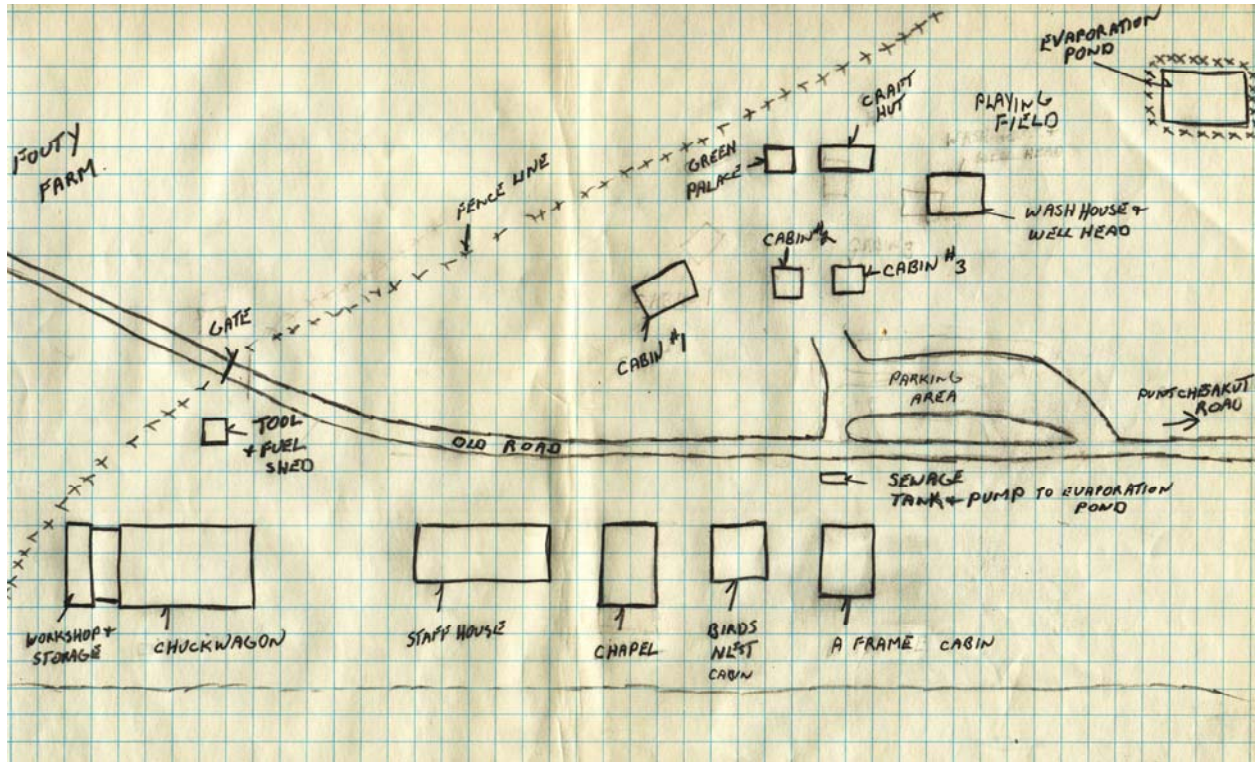 EVAPORATION
POND
CRAFT
HUT
PLAYING
FIELD
FOUTY
FARM.
GREEN
PALACE
FENCE LINE
WASH HOUSE +
WELL HEAD
CABIN #2
CABIN #3
GATE
CABIN #1
PARKING
AREA
PUNTCHESAKUT
ROAD
TOOL
+ FUEL
SHED
OLD ROAD
SEWAGE
TANK + PUMP TO EVAPORATION
POND
WORKSHOP +
STORAGE
CHUCKWAGON
STAFF HOUSE
CHAPEL
BIRDS
NEST
CABIN
A FRAME CABIN